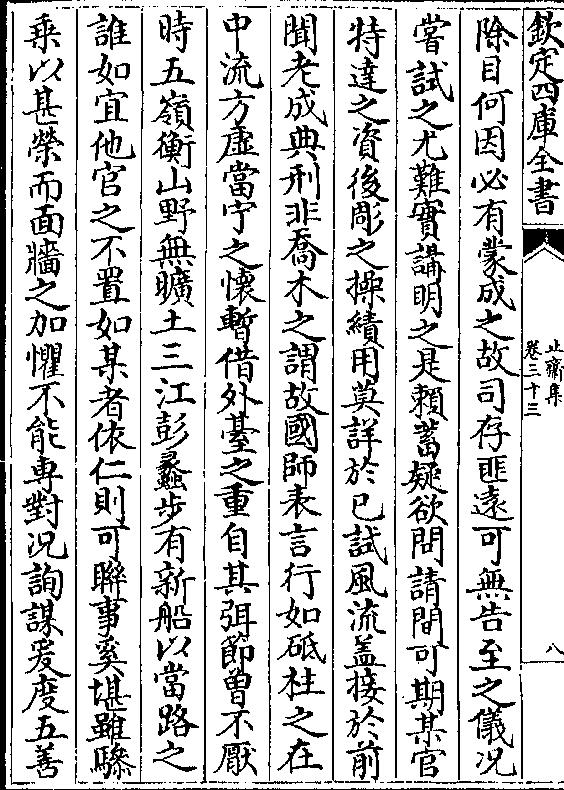 欽定四庫全書
止齋集
卷三十三
八
除目何因必有蒙成之故司存匪遠可無告至之儀况
嘗試之尤難實講明之是賴蓄疑欲問請間可期某官
特達之資後彫之操績用莫詳於已試風流盖接於前
聞老成典刑非喬木之謂故國師表言行如砥柱之在
中流方虛當宁之懷暫借外臺之重自其弭節曽不厭
時五嶺衡山野無曠土三江彭蠡步有新船以當路之
誰如宜他官之不置如某者依仁則可聯事奚堪雖驂
乗以甚榮而面牆之加懼不能專對况詢謀爰度五善